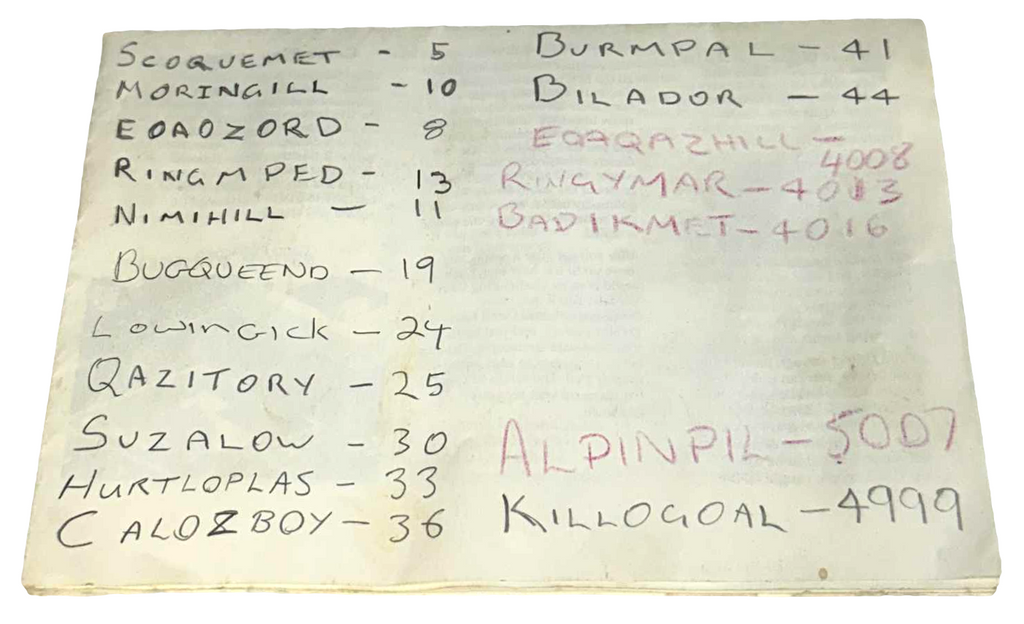 SCOQUEMET - 5
MORINGILL - 10
EOAOZORD - 8
RINGMPED - 13
NIMIHILL - 11
BUGQUEEND - 19
LOWINGICK - 24
QAZITORY - 25
SUZALOW - 30
HURTLOPLAS - 33
CALOZBOY - 36
BURMPAL - 41
BILADOR - 44
EQAQAZHILL -
4008
RINGYMAR - 4013
BADIKMET - 4016
ALPINPIL - 5007
KILLOGOAL - 4999